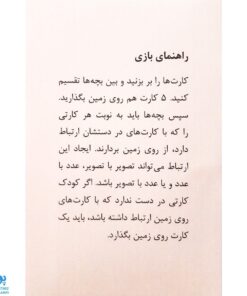 راهنمای بازی
کارت‌ها را بر بزنید و بین بچه‌ها تقسیم
کنید. ۵ کارت هم روی زمین بگذارید.
سپس بچه‌ها باید به نوبت هر کارتی
را که با کارت‌های در دستشان ارتباط
دارد، از روی زمین بردارند. ایجاد این
ارتباط می‌تواند تصویر با تصویر، عدد
با عدد و یا عدد با تصویر باشد. اگر کودک
کارتی در دست ندارد که با کارت‌های
روی زمین ارتباط داشته باشد، باید یک
کارت روی زمین بگذارد.